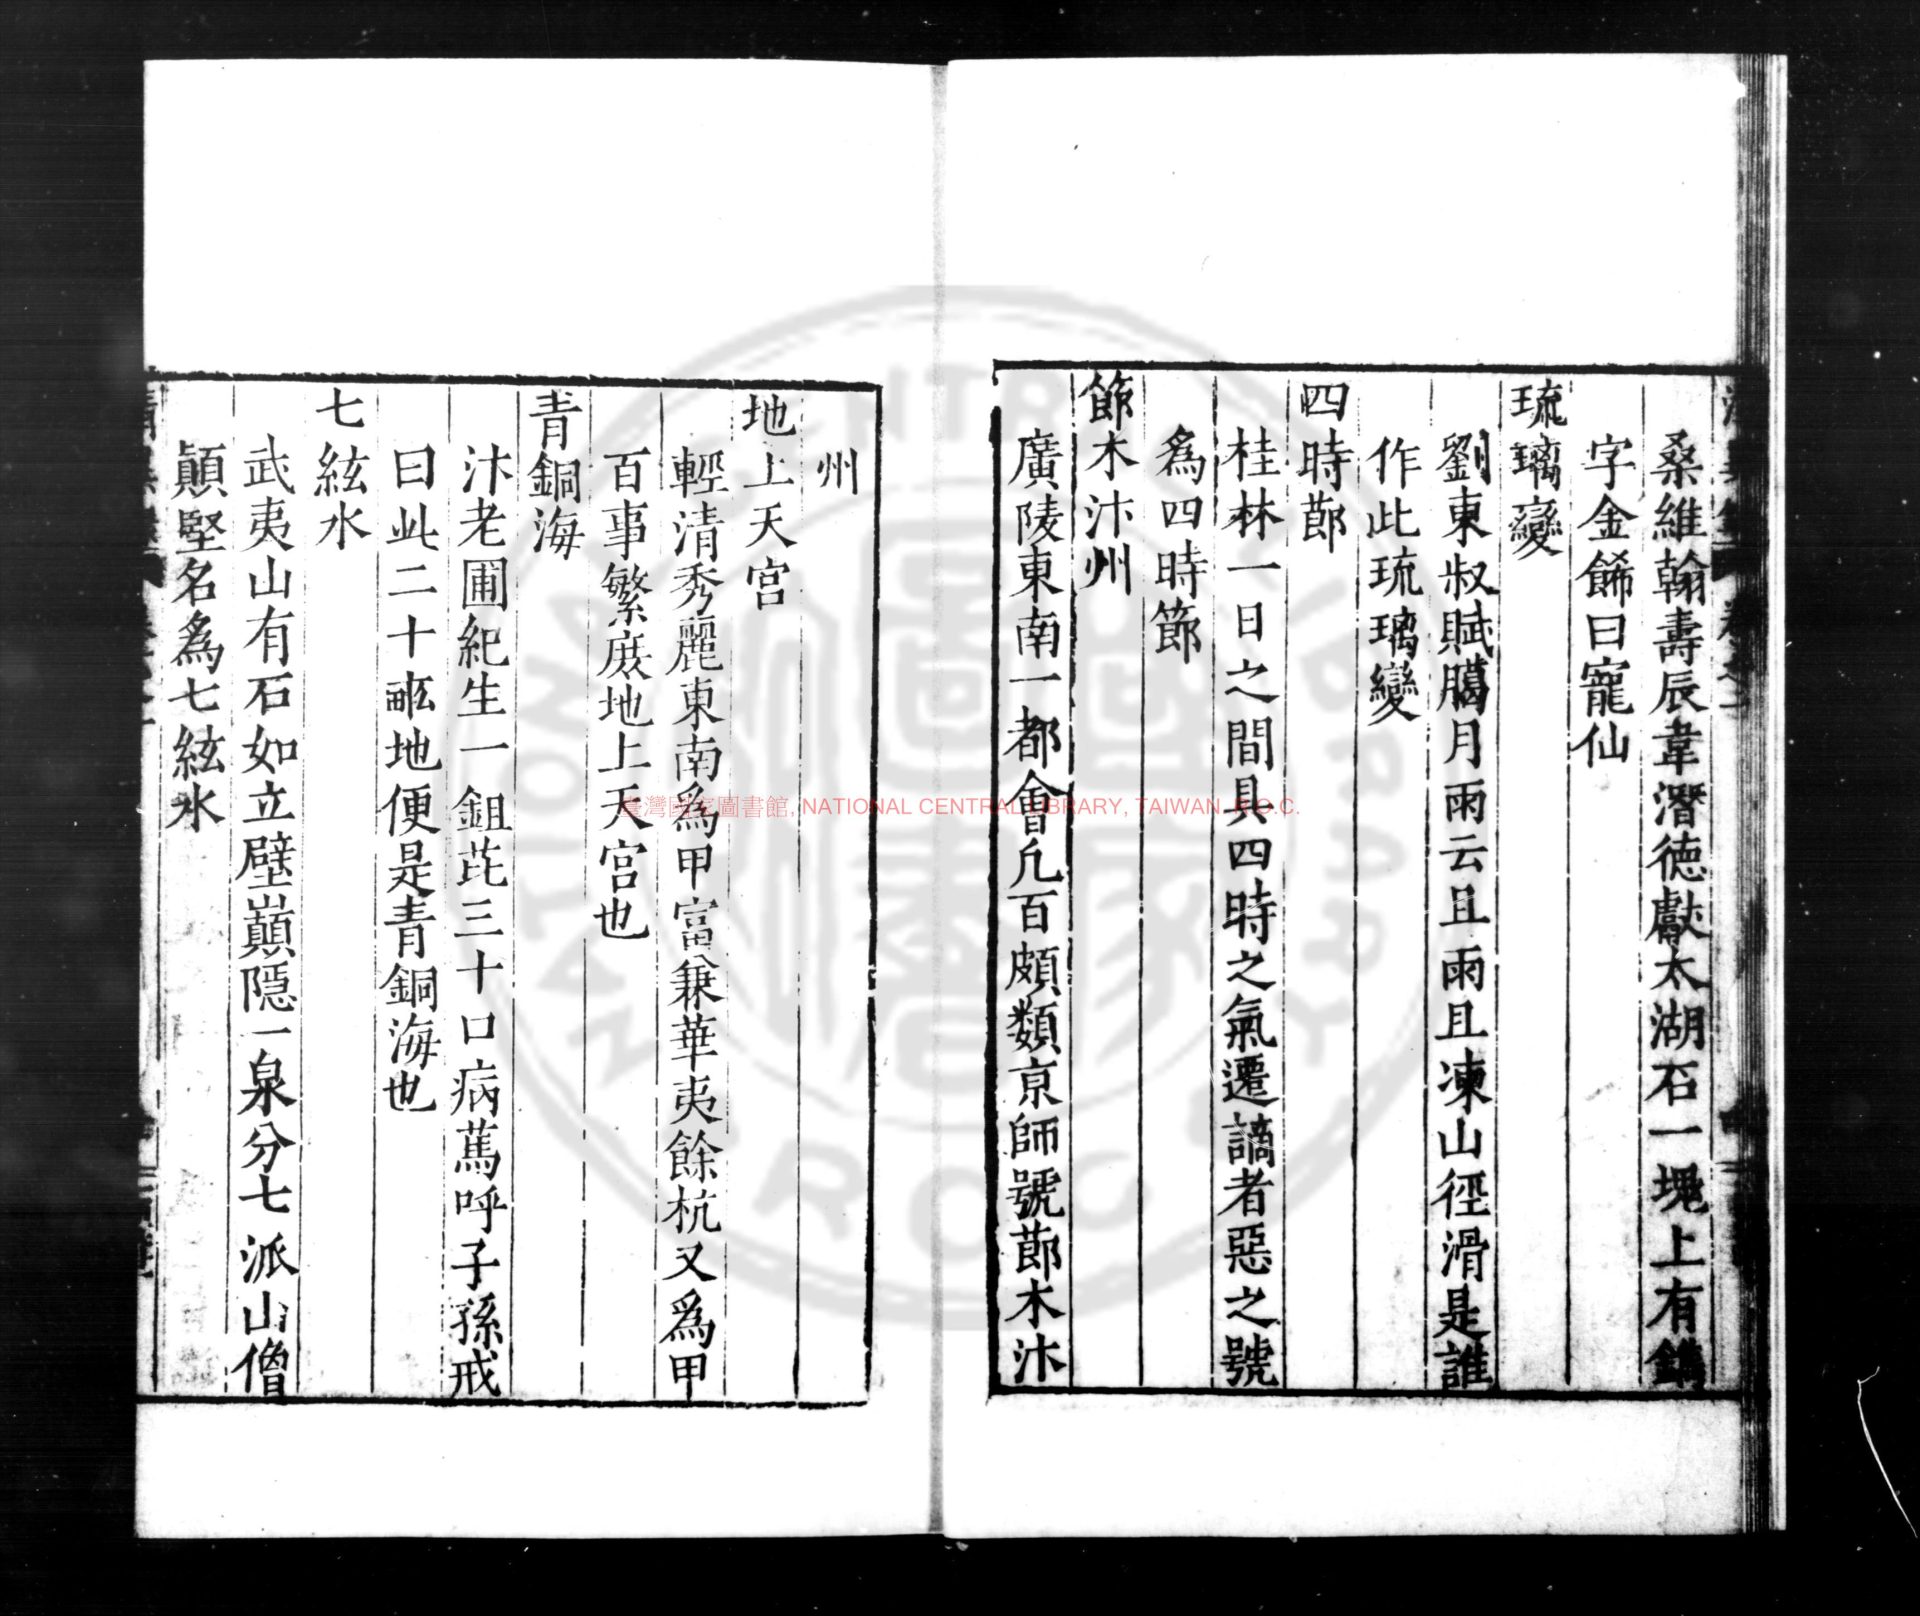 桑維翰壽辰韋潛德獻太湖石一塊上有鐫
字金飾曰寵仙
琉璃變
劉東叔賦臈月雨云且雨且凍山徑滑是誰
作此琉璃變
四時節
桂林一日之間具四時之氣遷謫者惡之號
為四時節
節木汴州
廣陵東南一都會凡百頗類京師號節木汴
州
地上天宮
輕清秀麗東南為甲富兼華夷餘杭又為甲
百事繁庶地上天宮也
青銅海
汴老圃紀生一鉏芘三十口病篤呼子孫戒
曰此二十畝地便是青銅海也
七絃水
武夷山有石如立壁巔隱一泉分七派山僧
顛堅名為七絃水
臺灣國家圖書館, NATIONAL CENTRAL LIBRARY, TAIWAN, R.O.C.